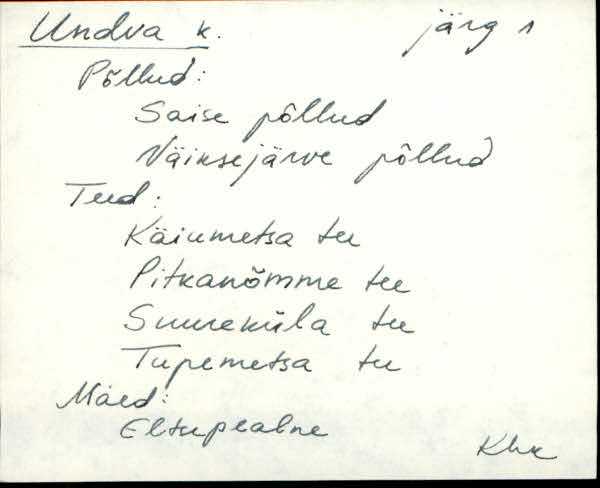 Undva k. järg 1
Põllud:
Saise põllud
Väiksejärve põllud
Teed:
Käiumetsa tee
Pitkanõmme tee
Suureküla tee
Tupemetsa tee
Mäed:
Eltupealne
Khk